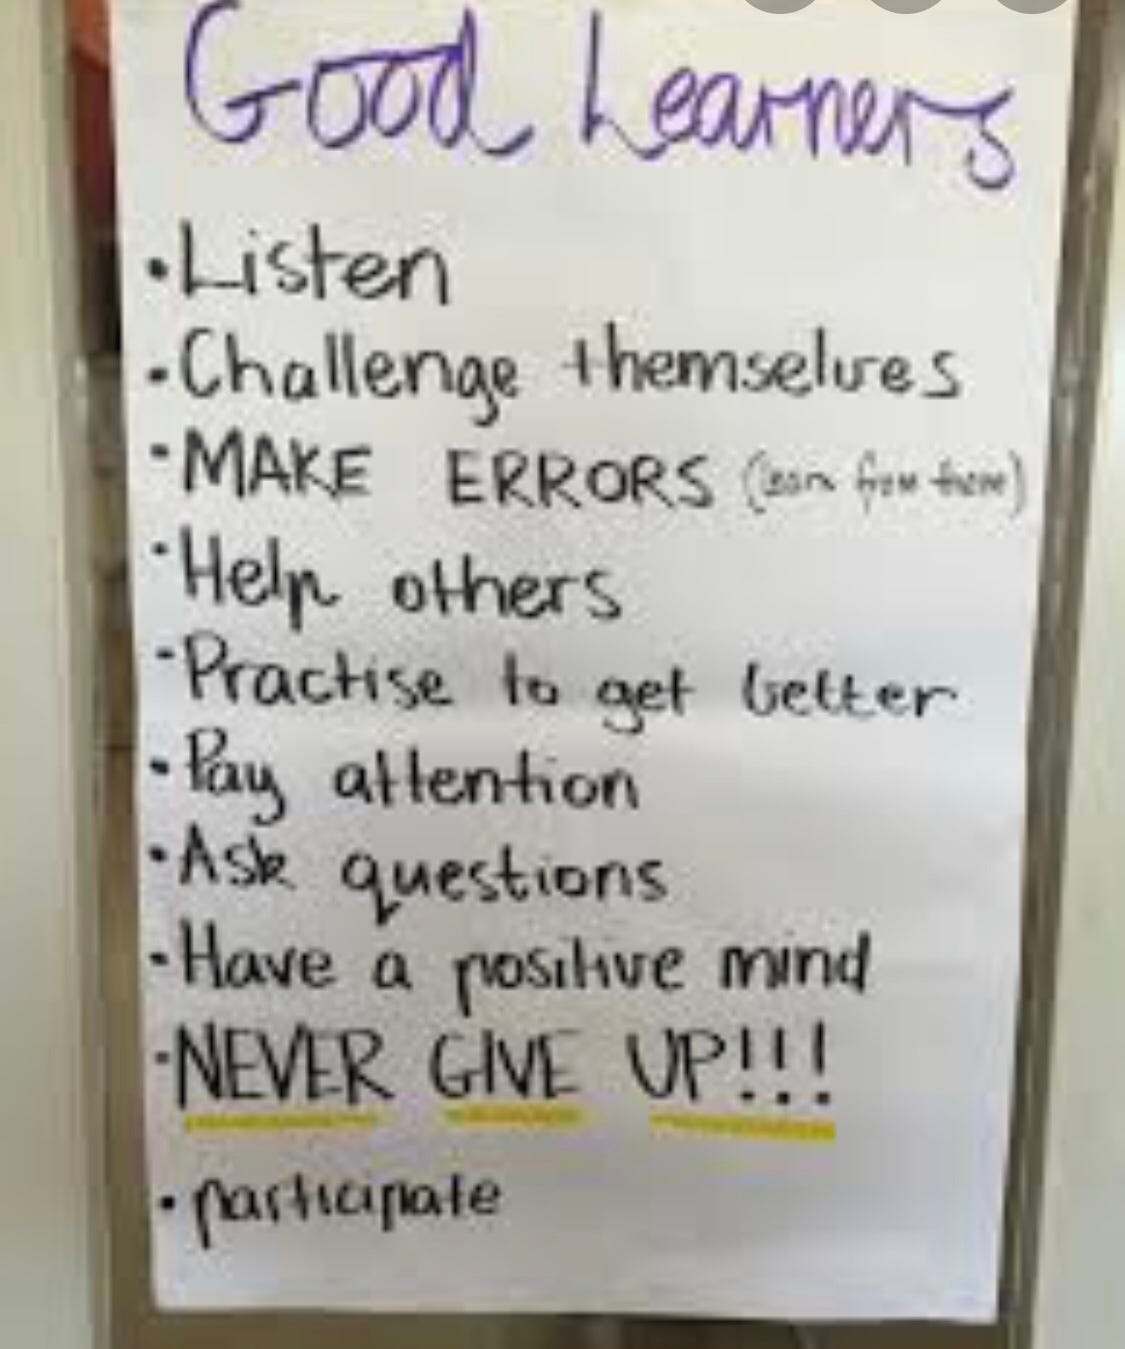 Good Learners
• Listen
• Challenge themselves
• MAKE ERRORS (learn from them)
• Help others
• Practise to get better
• Pay attention
• Ask questions
• Have a positive mind
• NEVER GIVE UP!!!
• participate